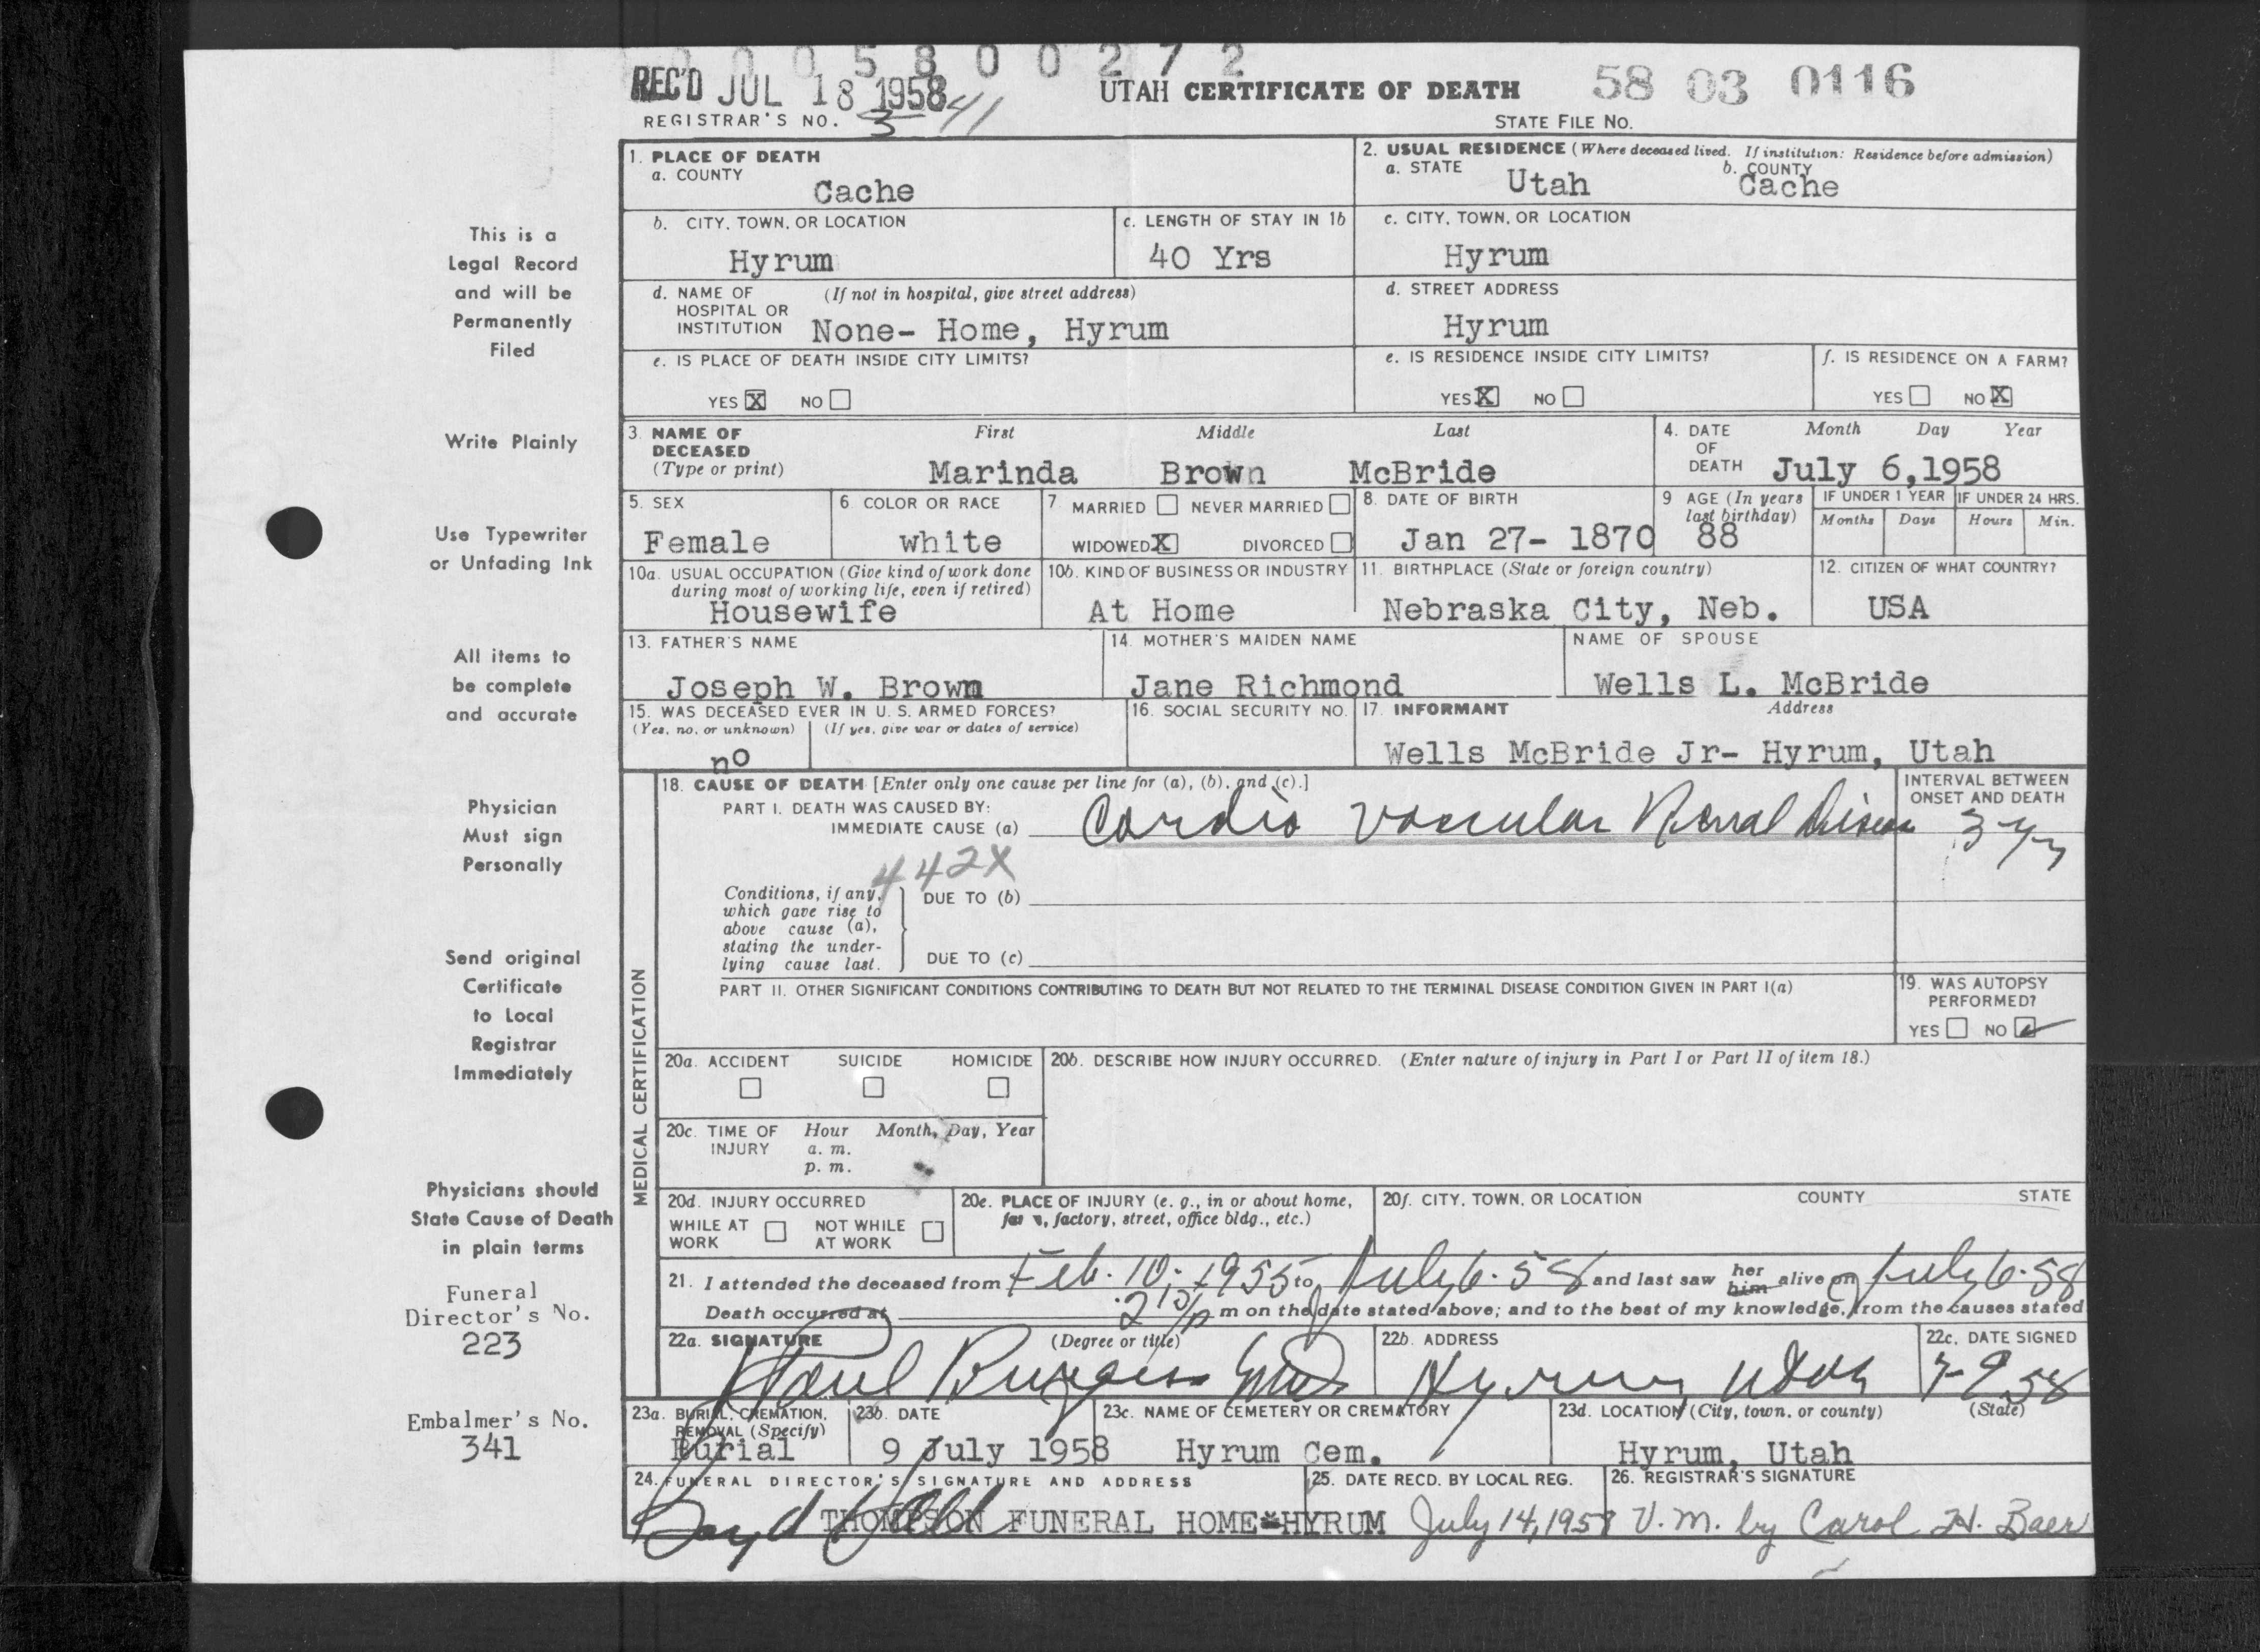 0 0 0 5 8 0 0 2 7 2
REC'D JUL 18 1958
UTAH CERTIFICATE OF DEATH 58 03 0116
REGISTRAR'S NO. 3 41
STATE FILE NO.
1. PLACE OF DEATH
a. COUNTY
Cache
2. USUAL RESIDENCE (Where deceased lived. If institution: Residence before admission)
a. STATE Utah b. COUNTY Cache
b. CITY, TOWN, OR LOCATION
Hyrum
c. LENGTH OF STAY IN 1b
40 Yrs
c. CITY, TOWN, OR LOCATION
Hyrum
d. NAME OF HOSPITAL OR INSTITUTION (If not in hospital, give street address)
None- Home, Hyrum
d. STREET ADDRESS
Hyrum
e. IS PLACE OF DEATH INSIDE CITY LIMITS?
YES X NO
e. IS RESIDENCE INSIDE CITY LIMITS?
YES X NO
f. IS RESIDENCE ON A FARM?
YES NO X
3. NAME OF DECEASED (Type or print)
First Middle Last
Marinda Brown McBride
4. DATE OF DEATH Month Day Year
July 6,1958
5. SEX
Female
6. COLOR OR RACE
white
7. MARRIED NEVER MARRIED
WIDOWED X DIVORCED
8. DATE OF BIRTH
Jan 27- 1870
9 AGE (In years last birthday)
88
IF UNDER 1 YEAR IF UNDER 24 HRS.
Months Days Hours Min.
10a. USUAL OCCUPATION (Give kind of work done during most of working life, even if retired)
Housewife
10b. KIND OF BUSINESS OR INDUSTRY
At Home
11. BIRTHPLACE (State or foreign country)
Nebraska City, Neb.
12. CITIZEN OF WHAT COUNTRY?
USA
13. FATHER'S NAME
Joseph W. Brown
14. MOTHER'S MAIDEN NAME
Jane Richmond
NAME OF SPOUSE
Wells L. McBride
15. WAS DECEASED EVER IN U. S. ARMED FORCES?
(Yes, no, or unknown) (If yes, give war or dates of service)
no
16. SOCIAL SECURITY NO.
17. INFORMANT Address
Wells McBride Jr- Hyrum, Utah
MEDICAL CERTIFICATION
18. CAUSE OF DEATH [Enter only one cause per line for (a), (b), and (c).]
PART I. DEATH WAS CAUSED BY:
IMMEDIATE CAUSE (a) Cardio Vascular Renal Disease
INTERVAL BETWEEN ONSET AND DEATH
3 yrs
442X
Conditions, if any, which gave rise to above cause (a), stating the underlying cause last.
DUE TO (b)
DUE TO (c)
PART II. OTHER SIGNIFICANT CONDITIONS CONTRIBUTING TO DEATH BUT NOT RELATED TO THE TERMINAL DISEASE CONDITION GIVEN IN PART I(a)
19. WAS AUTOPSY PERFORMED?
YES NO ✓
20a. ACCIDENT SUICIDE HOMICIDE
20b. DESCRIBE HOW INJURY OCCURRED. (Enter nature of injury in Part I or Part II of item 18.)
20c. TIME OF INJURY Hour Month, Day, Year
a. m.
p. m.
20d. INJURY OCCURRED
WHILE AT WORK NOT WHILE AT WORK
20e. PLACE OF INJURY (e. g., in or about home, farm, factory, street, office bldg., etc.)
20f. CITY, TOWN, OR LOCATION COUNTY STATE
21. I attended the deceased from Feb. 10, 1955 to July 6-58 and last saw her him alive on July 6-58
Death occurred at 2 10 p m on the date stated above; and to the best of my knowledge, from the causes stated
22a. SIGNATURE (Degree or title)
Paul Burgess MD
22b. ADDRESS
Hyrum Utah
22c. DATE SIGNED
7-9-58
23a. BURIAL, CREMATION, REMOVAL (Specify)
Burial
23b. DATE
9 July 1958
23c. NAME OF CEMETERY OR CREMATORY
Hyrum Cem.
23d. LOCATION (City, town, or county) (State)
Hyrum, Utah
24. FUNERAL DIRECTOR'S SIGNATURE AND ADDRESS
Boyd
THOMPSON FUNERAL HOME-HYRUM
25. DATE RECD. BY LOCAL REG.
July 14, 1958
26. REGISTRAR'S SIGNATURE
V. M. by Carol H. Baer
This is a
Legal Record
and will be
Permanently
Filed
Write Plainly
Use Typewriter
or Unfading Ink
All items to
be complete
and accurate
Physician
Must sign
Personally
Send original
Certificate
to Local
Registrar
Immediately
Physicians should
State Cause of Death
in plain terms
Funeral
Director's No.
223
Embalmer's No.
341